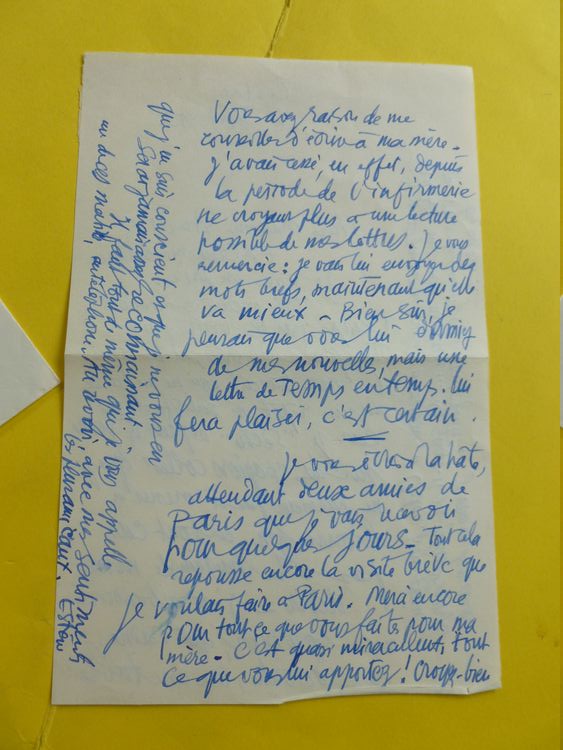 Vous avez raison de me
conseiller d'écrire à ma mère.
J'avais cessé, en effet, depuis
la période de l'infirmerie
ne croyant plus à une lecture
possible de mes lettres. Je vous
remercie : je vais lui envoyer des
mots brefs, maintenant qu'elle
va mieux - Bien sûr, je
pensais que vous lui donniez
de mes nouvelles, mais une
lettre de temps en temps lui
fera plaisir, c'est certain.
Je vous écris à la hâte,
attendant deux amies de
Paris que je vais recevoir
pour quelques jours. Tout cela
repousse encore la visite brève que
je voulais faire à Paris. Merci encore
pour tout ce que vous faites pour ma
mère. C'est quasi miraculeux tout
ce que vous lui apportez ! Croyez-bien
que j'en suis conscient et que je ne vous en
serai jamais assez reconnaissant
Il faut tout de même que je vous appelle
un de ces matins, au téléphone. Au revoir, avec mes sentiments
les plus amicaux.